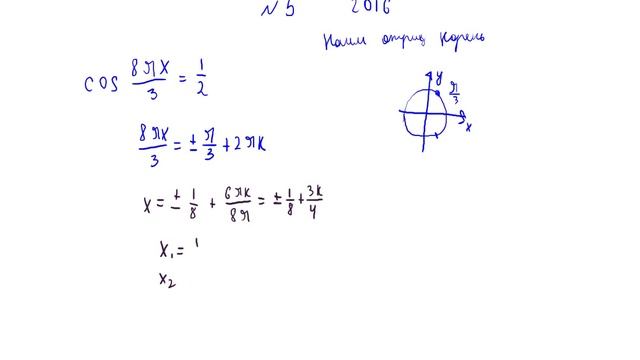 №5 2016
Наим отриц корень
cos 8πx/3 = 1/2
y
π/3
x
8πx/3 = ± π/3 + 2πk
x = ± 1/8 + 6πk/8π = ± 1/8 + 3k/4
x₁ = 1
x₂